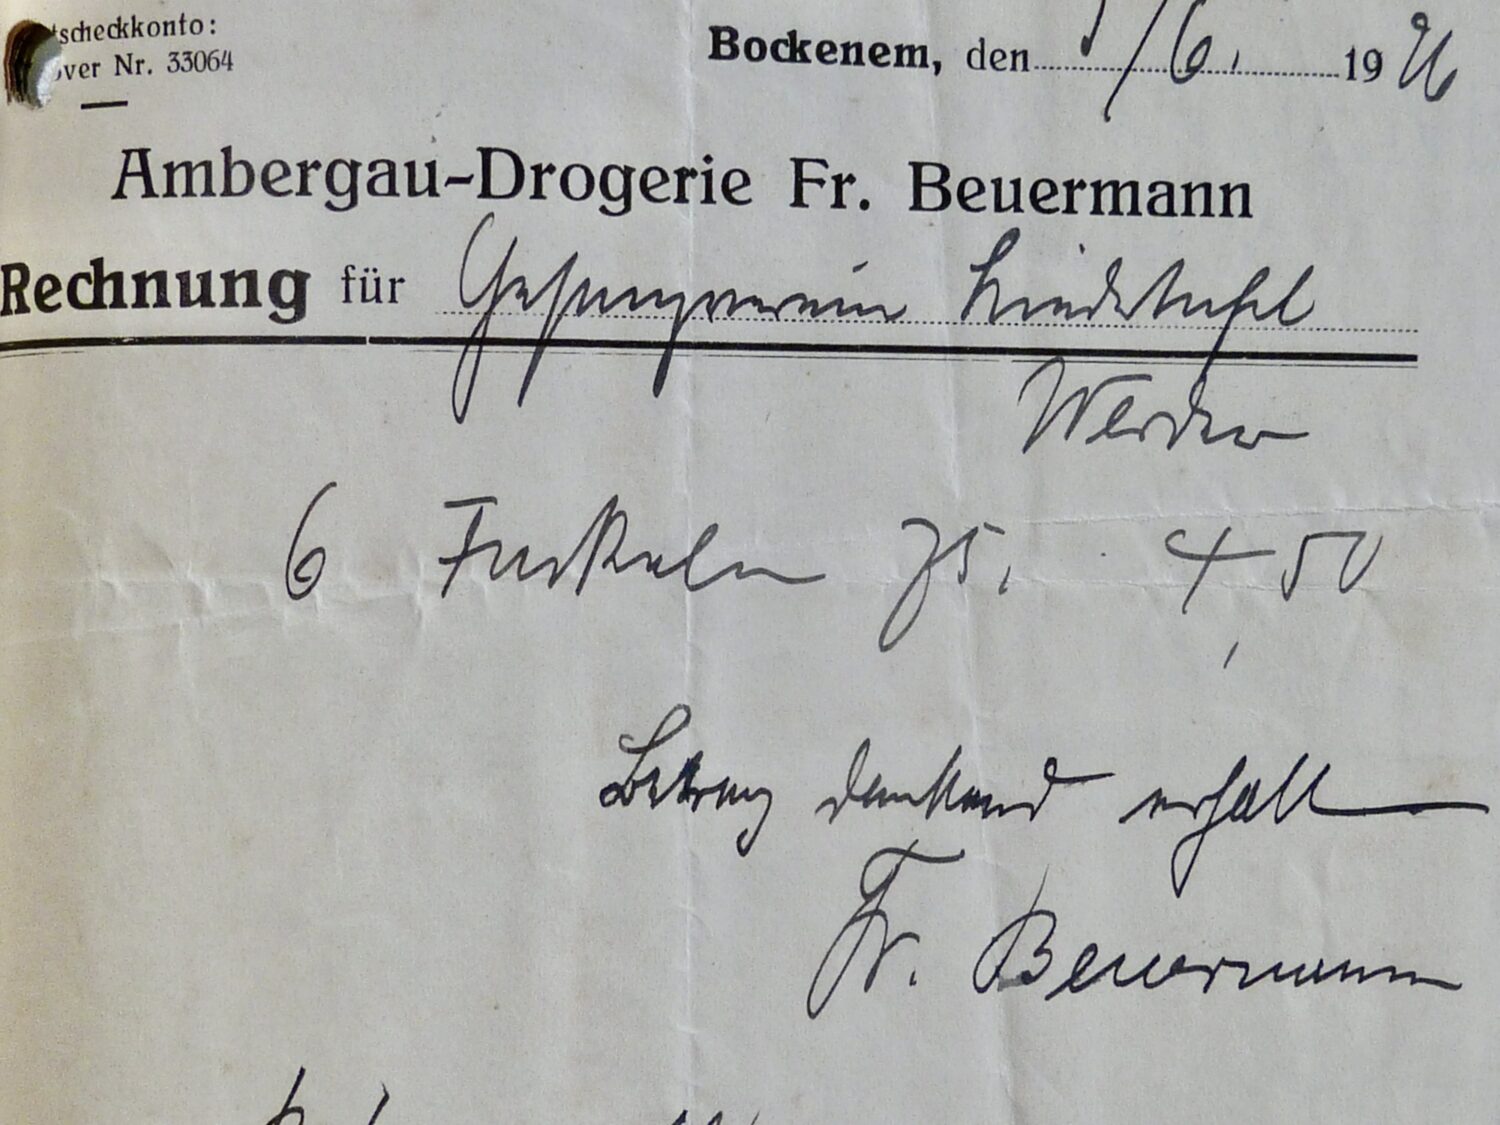 tscheckkonto:
over Nr. 33064
Bockenem, den /6. 1926
Ambergau-Drogerie Fr. Beuermann
Rechnung für Gesangverein Liedertafel
Werder
6 Fackeln 75. 4 50
Betrag dankend erhalt
Fr. Beuermann